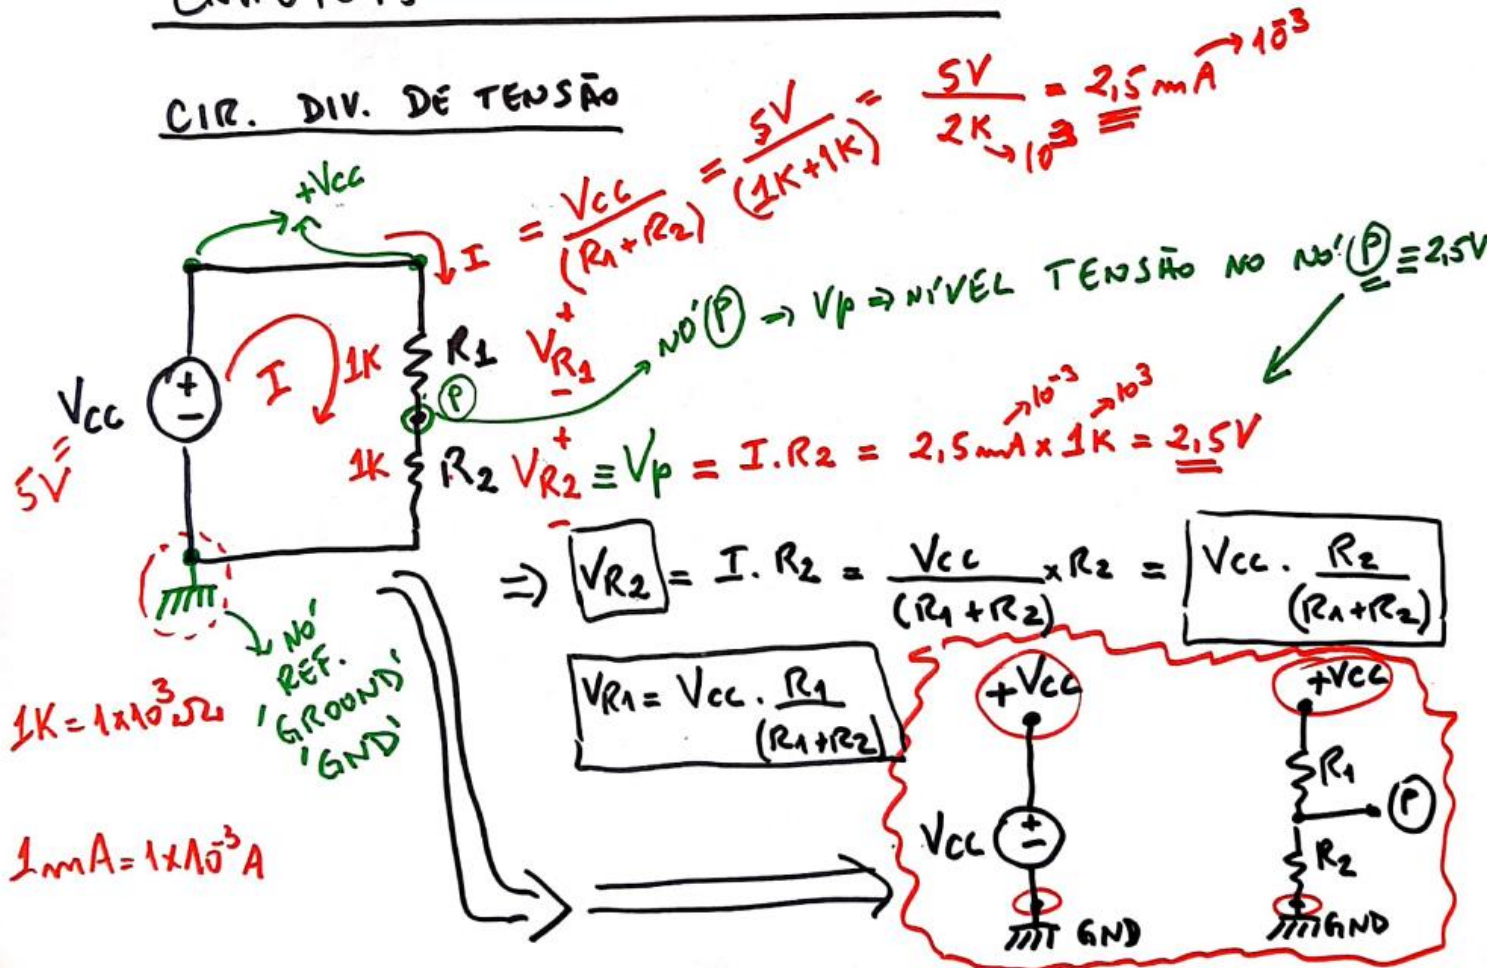 CIR. DIV. DE TENSÃO
+Vcc
I = Vcc / (R1+R2) = 5V / (1K+1K) = 5V / 2K = 2,5mA
10^-3
10^3
Vcc
5V
I
1K
R1
VR1
+
-
P
NÓ P → Vp ⇒ NÍVEL TENSÃO NO NÓ P ≡ 2,5V
1K
R2
+
-
VR2 ≡ Vp = I.R2 = 2,5mA x 1K = 2,5V
10^-3
10^3
⇒ VR2 = I.R2 = Vcc / (R1+R2) x R2 = Vcc . R2 / (R1+R2)
NÓ
REF.
'GROUND'
'GND'
VR1 = Vcc . R1 / (R1+R2)
1K = 1x10^3 Ω
1mA = 1x10^-3 A
+Vcc
Vcc
+
-
GND
+Vcc
R1
P
R2
GND